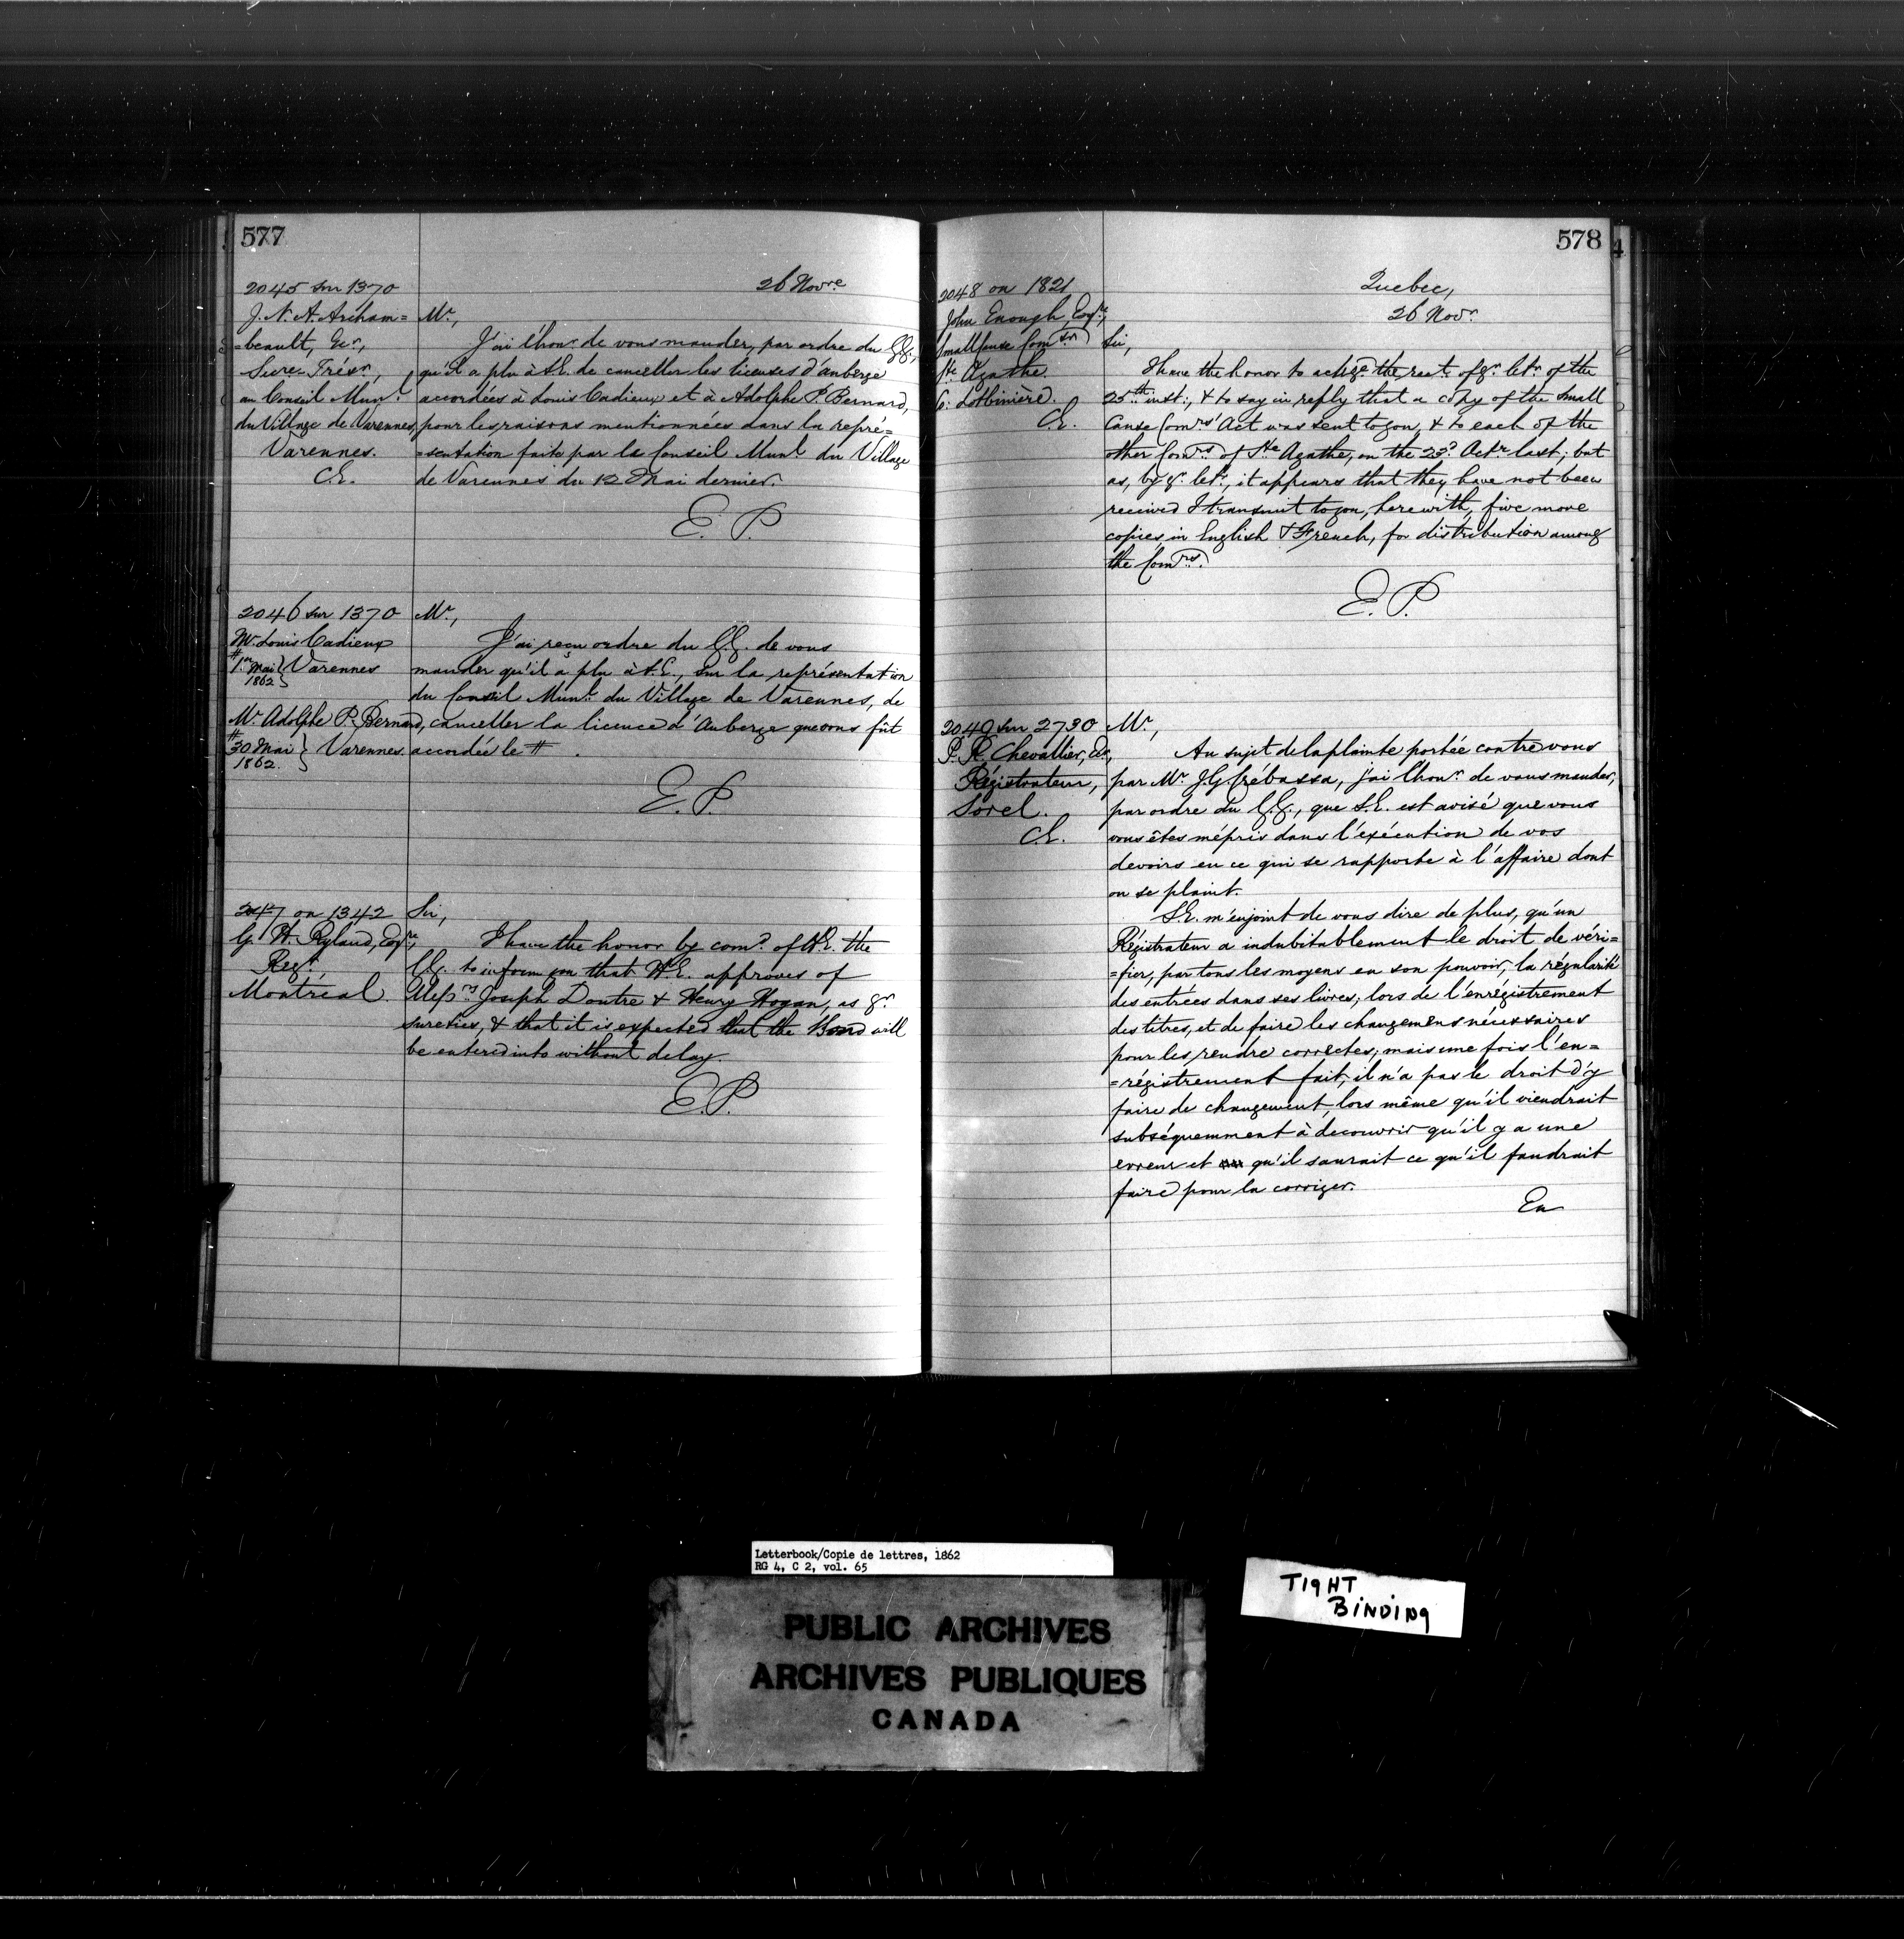 577
26 Novre
2045 sur 1370
J. N. A. Archam=
=beault, Ecr,
Secre-Trésr,
au Conseil Munl
du Village de Varennes,
Varennes.
C.E.
Mr,
J'ai l'honr de vous mander, par ordre du G.G.,
qu'il a plu à S.E. de canceller les licenses d'auberge
accordées à Louis Cadieux et à Adolphe P. Bernard,
pour les raisons mentionnées dans la repré=
=sentation faite par le Conseil Munl du Village
de Varennes du 12 Mai dernier.
E. P.
2046 sur 1370
Mr. Louis Cadieux
# 1er Mai 1862 } Varennes
Mr. Adolphe P. Bernard,
# 30 Mai 1862. } Varennes
Mr,
J'ai reçu ordre du G.G. de vous
mander qu'il a plu à S.E., sur la représentation
du Conseil Munl. du Village de Varennes, de
canceller la licence d'Auberge que vous fût
accordée le # .
E. P.
2047 on 1342
G. H. Ryland, Esqre,
Regr.
Montreal.
Sir,
I have the honor by comd. of H.E. the
G.G. to inform you that H.E. approves of
Messrs Joseph Doutre & Henry Hogan, as yr
sureties, & that it is expected that the Bond will
be entered into without delay.
E. P.
578
4
Quebec,
26 Novr.
2048 on 1821
John Enough, Esqre,
Small Cause Comsr
Ste Agathe.
C: Lotbinière.
C.E.
Sir,
I have the honor to acknge the rect. of yr. letr. of the
25th inst:, & to say in reply that a copy of the Small
Cause Comrs' Act was sent to you, & to each of the
other Comrs of Ste Agathe, on the 23d Octr last; but
as, by yr. letr, it appears that they have not been
received I transmit to you, herewith, five more
copies, in English & French, for distribution among
the Comrs.
E. P.
2049 sur 2730
P. R. Chevallier, Ecr,
Régistrateur,
Sorel.
C.E.
Mr,
Au sujet de la plainte portée contre vous
par Mr. J.G. Crébassa, j'ai l'honr. de vous mander,
par ordre du G.G., que S.E. est avisé que vous
vous êtes mépris dans l'exécution de vos
devoirs en ce qui se rapporte à l'affaire dont
on se plaint.
S.E. m'enjoint de vous dire de plus, qu'un
Régistrateur a indubitablement le droit de véri=
=fier, par tous les moyens en son pouvoir, la régularité
des entrées dans ses livres, lors de l'enrégistrement
des titres, et de faire les changemens nécessaires
pour les rendre correctes, mais une fois l'en=
=régistrement fait, il n'a pas le droit d'y
faire de changement, lors même qu'il viendrait
subséquemment à decouvrir qu'il y a une
erreur et qu'il saurait ce qu'il faudrait
faire pour la corriger.
En
Letterbook/Copie de lettres, 1862
RG 4, C 2, vol. 65
TIGHT
BINDING
PUBLIC ARCHIVES
ARCHIVES PUBLIQUES
CANADA